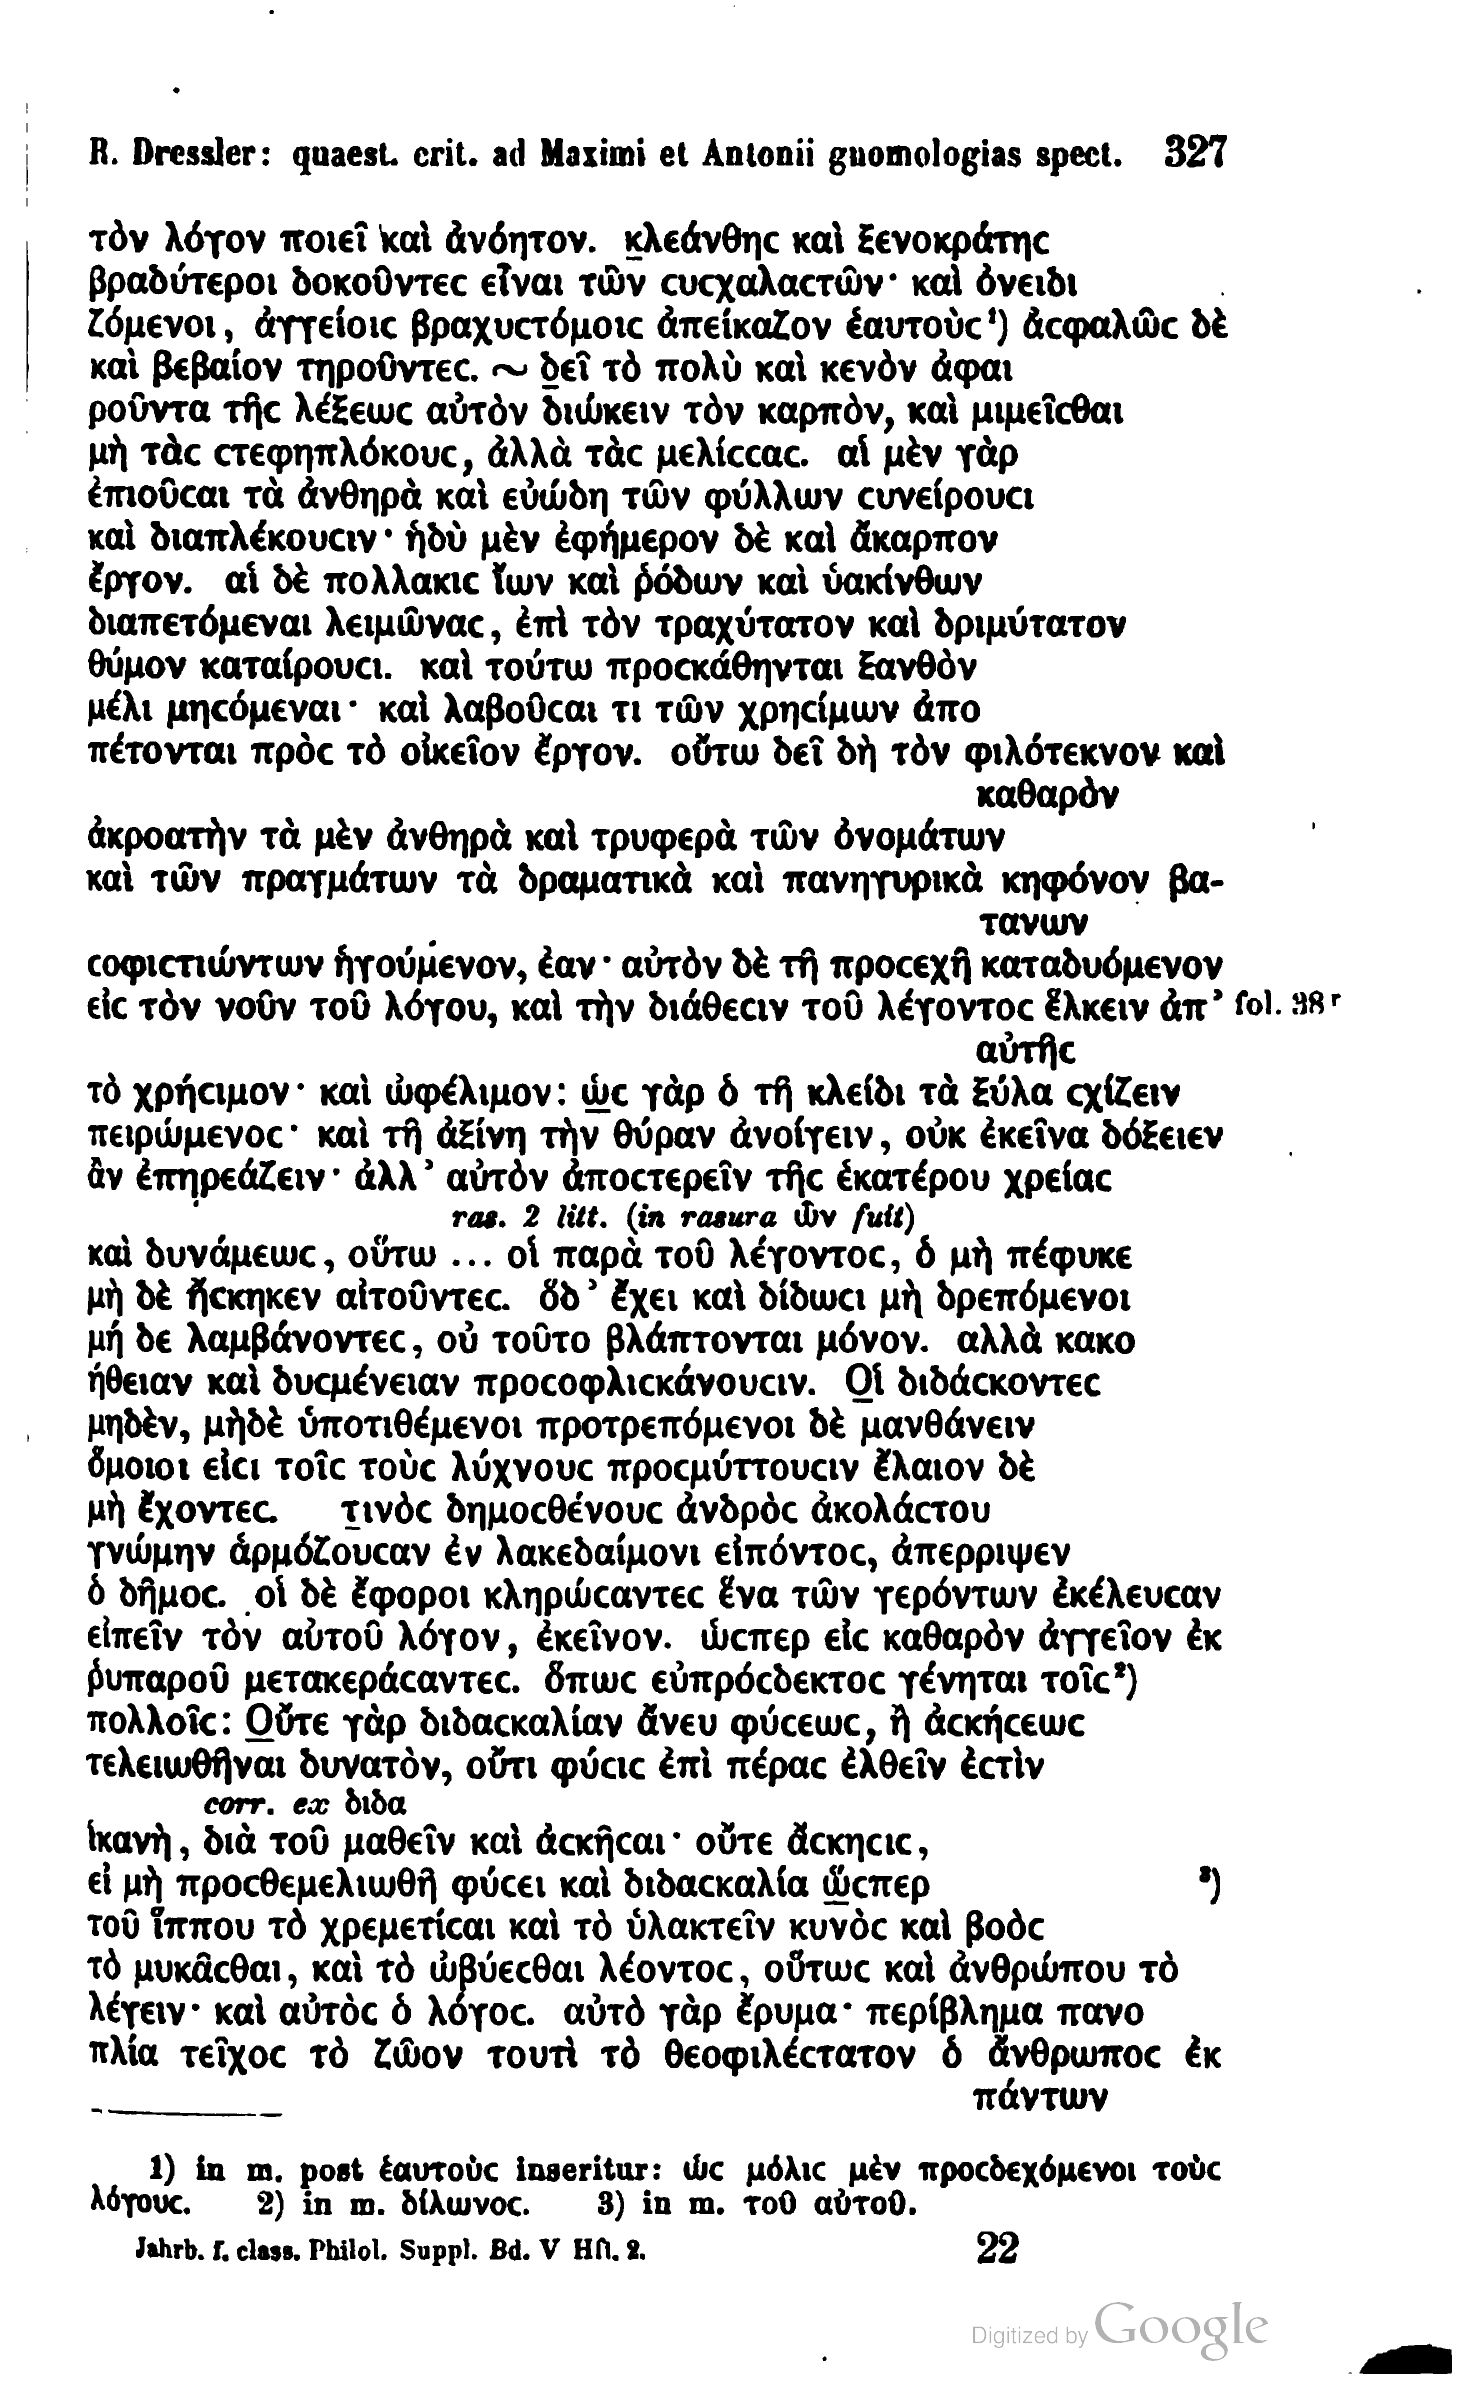 R. Dressler: quaest. crit. ad Maximi et Antonii gnomologias spect. 327
τὸν λόγον ποιεῖ καὶ ἀνόητον. κλεάνθηϲ καὶ ξενοκράτηϲ
βραδύτεροι δοκοῦντεϲ εἶναι τῶν ϲυϲχαλαϲτῶν· καὶ ὀνειδι
ζόμενοι, ἀγγείοιϲ βραχυϲτόμοιϲ ἀπείκαζον ἑαυτοὺϲ¹) ἀϲφαλῶϲ δὲ
καὶ βεβαίον τηροῦντεϲ. ~ δεῖ τὸ πολὺ καὶ κενὸν ἀφαι
ροῦντα τῆϲ λέξεωϲ αὐτὸν διώκειν τὸν καρπὸν, καὶ μιμεῖϲθαι
μὴ τὰϲ ϲτεφηπλόκουϲ, ἀλλὰ τὰϲ μελίϲϲαϲ. αἱ μὲν γὰρ
ἐπιοῦϲαι τὰ ἀνθηρὰ καὶ εὐώδη τῶν φύλλων ϲυνείρουϲι
καὶ διαπλέκουϲιν· ἡδὺ μὲν ἐφήμερον δὲ καὶ ἄκαρπον
ἔργον. αἱ δὲ πολλακιϲ ἴων καὶ ῥόδων καὶ ὑακίνθων
διαπετόμεναι λειμῶναϲ, ἐπὶ τὸν τραχύτατον καὶ δριμύτατον
θύμον καταίρουϲι. καὶ τούτω προϲκάθηνται ξανθὸν
μέλι μηϲόμεναι· καὶ λαβοῦϲαι τι τῶν χρηϲίμων ἀπο
πέτονται πρὸϲ τὸ οἰκεῖον ἔργον. οὕτω δεῖ δὴ τὸν φιλότεκνον καὶ
καθαρὸν
ἀκροατὴν τὰ μὲν ἀνθηρὰ καὶ τρυφερὰ τῶν ὀνομάτων
καὶ τῶν πραγμάτων τὰ δραματικὰ καὶ πανηγυρικὰ κηφόνον βα-
τανων
ϲοφιϲτιώντων ἡγούμενον, ἐαν· αὐτὸν δὲ τῆ προϲεχῆ καταδυόμενον
εἰϲ τὸν νοῦν τοῦ λόγου, καὶ τὴν διάθεϲιν τοῦ λέγοντοϲ ἕλκειν ἀπ’ fol. 38ʳ
αὐτῆϲ
τὸ χρήϲιμον· καὶ ὠφέλιμον: ὡϲ γὰρ ὁ τῆ κλείδι τὰ ξύλα ϲχίζειν
πειρώμενοϲ· καὶ τῆ ἀξίνη τὴν θύραν ἀνοίγειν, οὐκ ἐκεῖνα δόξειεν
ἂν ἐπηρεάζειν· ἀλλ’ αὐτὸν ἀποϲτερεῖν τῆϲ ἑκατέρου χρείαϲ
ras. 2 litt. (in rasura ὧν fuit)
καὶ δυνάμεωϲ, οὕτω ... οἱ παρὰ τοῦ λέγοντοϲ, ὁ μὴ πέφυκε
μὴ δὲ ἤϲκηκεν αἰτοῦντεϲ. ὅδ’ ἔχει καὶ δίδωϲι μὴ δρεπόμενοι
μή δε λαμβάνοντεϲ, οὐ τοῦτο βλάπτονται μόνον. αλλὰ κακο
ήθειαν καὶ δυϲμένειαν προϲοφλιϲκάνουϲιν. Οἱ διδάϲκοντεϲ
μηδὲν, μὴδὲ ὑποτιθέμενοι προτρεπόμενοι δὲ μανθάνειν
ὅμοιοι εἰϲι τοῖϲ τοὺϲ λύχνουϲ προϲμύττουϲιν ἔλαιον δὲ
μὴ ἔχοντεϲ. τινὸϲ δημοϲθένουϲ ἀνδρὸϲ ἀκολάϲτου
γνώμην ἁρμόζουϲαν ἐν λακεδαίμονι εἰπόντοϲ, ἀπερριψεν
ὁ δῆμοϲ. οἱ δὲ ἔφοροι κληρώϲαντεϲ ἕνα τῶν γερόντων ἐκέλευϲαν
εἰπεῖν τὸν αὐτοῦ λόγον, ἐκεῖνον. ὡϲπερ εἰϲ καθαρὸν ἀγγεῖον ἐκ
ῥυπαροῦ μετακεράϲαντεϲ. ὅπωϲ εὐπρόϲδεκτοϲ γένηται τοῖϲ²)
πολλοῖϲ: Οὔτε γὰρ διδαϲκαλίαν ἄνευ φύϲεωϲ, ἢ ἀϲκήϲεωϲ
τελειωθῆναι δυνατὸν, οὔτι φύϲιϲ ἐπὶ πέραϲ ἐλθεῖν ἐϲτὶν
corr. ex διδα
ἱκανὴ, διὰ τοῦ μαθεῖν καὶ ἀϲκῆϲαι· οὔτε ἄϲκηϲιϲ,
εἰ μὴ προϲθεμελιωθῆ φύϲει καὶ διδαϲκαλία ὥϲπερ ³)
τοῦ ἵππου τὸ χρεμετίϲαι καὶ τὸ ὑλακτεῖν κυνὸϲ καὶ βοὸϲ
τὸ μυκᾶϲθαι, καὶ τὸ ὠβύεϲθαι λέοντοϲ, οὕτωϲ καὶ ἀνθρώπου τὸ
λέγειν· καὶ αὐτὸϲ ὁ λόγοϲ. αὐτὸ γὰρ ἔρυμα· περίβλημα πανο
πλία τεῖχοϲ τὸ ζῶον τουτὶ τὸ θεοφιλέϲτατον ὁ ἄνθρωποϲ ἐκ
πάντων
1) in m. post ἑαυτοὺϲ inseritur: ὡϲ μόλιϲ μὲν προϲδεχόμενοι τοὺϲ
λόγουϲ. 2) in m. δίλωνοϲ. 3) in m. τοῦ αὐτοῦ.
Jahrb. f. class. Philol. Suppl. Bd. V Hft. 2. 22
Digitized by Google